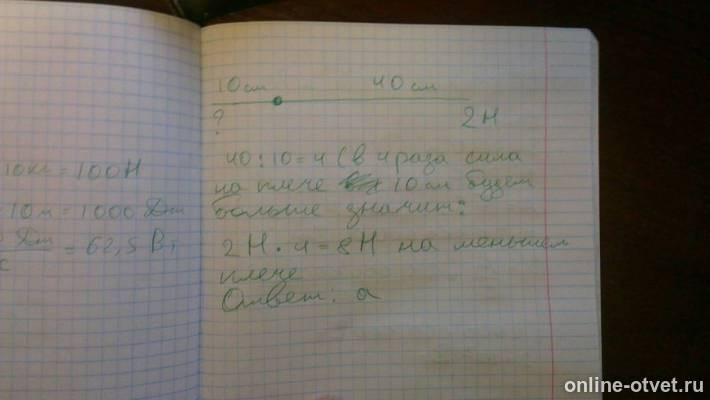 10 см 40 см
? 2Н
40:10=4 (в 4 раза сила
на плече 10 см будет
больше значит:
2Н · 4 = 8Н на меньшем
плече
Ответ: а
10кг = 100Н
10м = 1000 Дж
Дж
с
= 62,5 Вт
online-otvet.ru